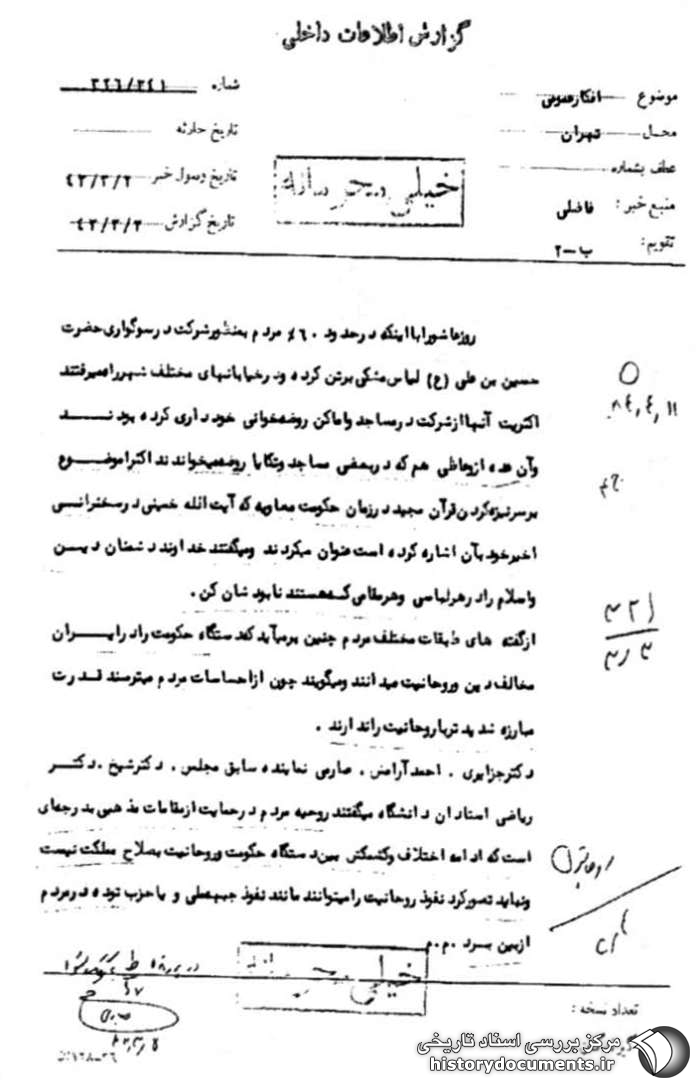 گزارش اطلاعات داخلی
موضوع افکار عمومی
محل تهران
عطف بشماره
منبع خبر : فاضلی
تقویم: ب-۲
شماره ۳۲۶/۲۴۱
تاریخ حادثه
تاریخ وصول خبر ۴۳/۳/۲
تاریخ گزارش ۴۳/۳/۳
خیلی محرمانه
روز عاشورا با اینکه در حدود ۶۰٪ مردم بمنظور شرکت در سوگواری حضرت
حسین بن علی (ع) لباس مشکی برتن کرده و در خیابانهای مختلف شهر راه میرفتند
اکثریت آنها از شرکت در مساجد و اماکن روضه‌خوانی خود داری کرده بودنـــد
وآن عده ازوعاظی هم که در بعضی مساجد وتکایا روضه میخواندند اکثرا موضـــوع
برسرنیزه کردن قرآن مجید در زمان حکومت معاویه که آیت الله خمینی در سخنرانـــی
اخیر خود بآن اشاره کرده است عنوان میکردند ومیگفتند خداوند دشمنان دیـــن
واسلام را در هر لباسی وهر مقامی که هستند نابود شان کن .
از گفته های طبقات مختلف مردم چنین بر میآید که دستگاه حکومت را در ایـــران
مخالف دین وروحانیت میدانند ومیگویند چون از احساسات مردم میترسند قـــدرت
مبارزه شدید تر با روحانیت را ندارند .
دکتر جزایری . احمد آرامش . صارمی نماینده سابق مجلس . دکتر شیخ . دکتـــر
ریاضی استادان دانشگاه میگفتند روحیه مردم در حمایت از مقامات مذهبی بدرجه‌ای
است که ادامه اختلاف وکشمکش بین دستگاه حکومت وروحانیت بصلاح مملکت نیست
ونباید تصور کرد نفوذ روحانیت را میتوانند مانند نفوذ جبهه ملی و یا حزب توده در مردم
از بین ببرد .م.م
خیلی محرمانه
تعداد نسخه :
مرکز بررسی اسناد تاریخی
historydocuments.ir